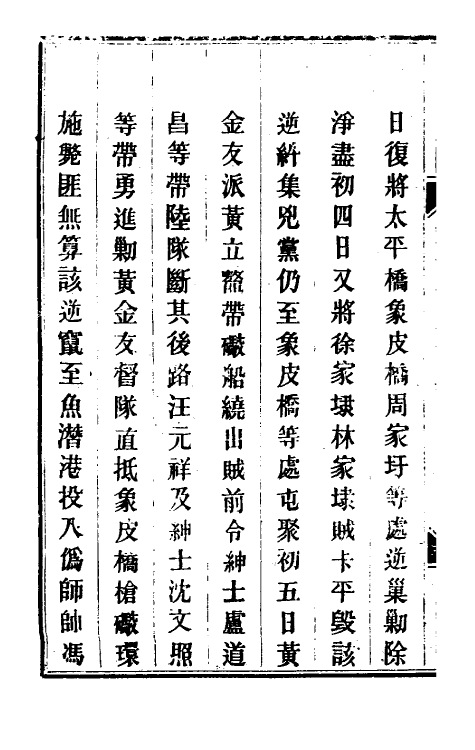 日復將太平橋象皮橋周家圩等處逆巢勦除
淨盡初四日又將徐家埭林家埭賊卡平毀該
逆糾集兇黨仍至象皮橋等處屯聚初五日黃
金友派黃立鰲帶礮船繞出賊前令紳士盧道
昌等帶陸隊斷其後路汪元祥及紳士沈文照
等帶勇進勦黃金友督隊直抵象皮橋槍礮環
施斃匪無算該逆竄至魚潛港投入僞師帥馮